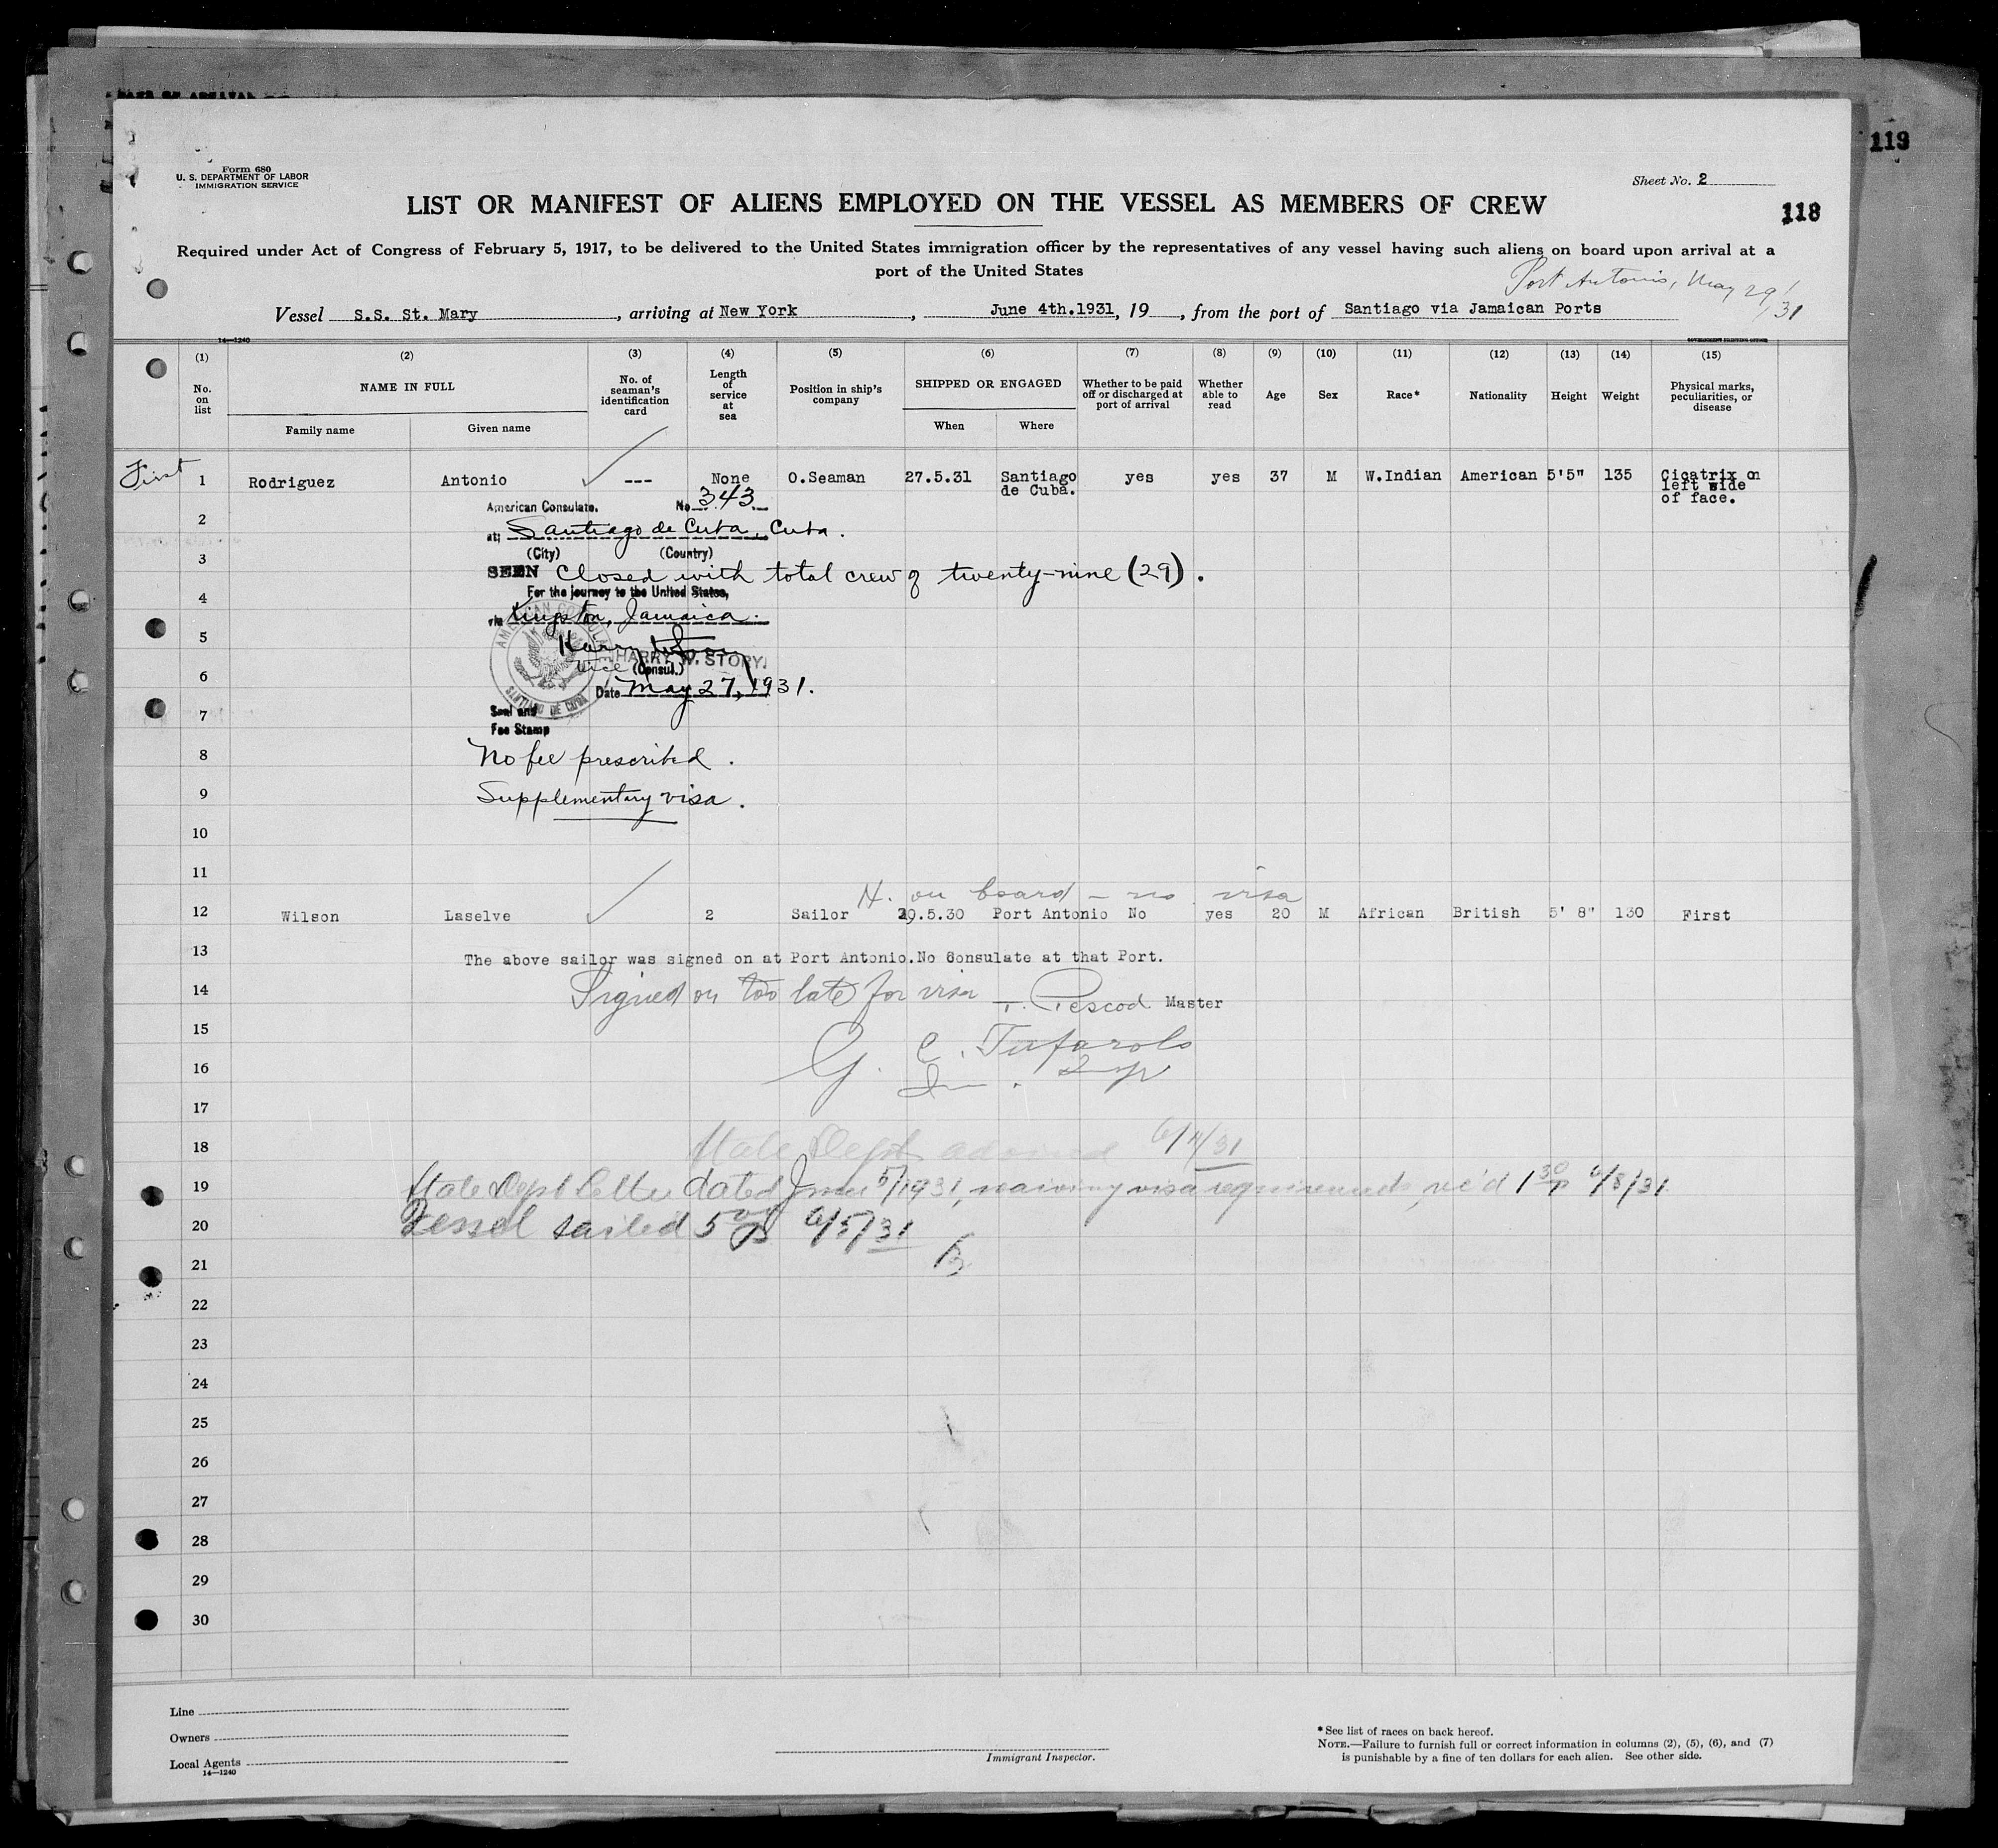 119
Form 680
U. S. DEPARTMENT OF LABOR
IMMIGRATION SERVICE
Sheet No. 2
118
LIST OR MANIFEST OF ALIENS EMPLOYED ON THE VESSEL AS MEMBERS OF CREW
Required under Act of Congress of February 5, 1917, to be delivered to the United States immigration officer by the representatives of any vessel having such aliens on board upon arrival at a
port of the United States
Port Antonio, May 29/31
Vessel S.S. St. Mary, arriving at New York, June 4th.1931, 19, from the port of Santiago via Jamaican Ports
14—1240
GOVERNMENT PRINTING OFFICE
(1) (2) (3) (4) (5) (6) (7) (8) (9) (10) (11) (12) (13) (14) (15)
No. on list
NAME IN FULL
Family name
Given name
No. of seaman's identification card
Length of service at sea
Position in ship's company
SHIPPED OR ENGAGED
When
Where
Whether to be paid off or discharged at port of arrival
Whether able to read
Age
Sex
Race*
Nationality
Height
Weight
Physical marks, peculiarities, or disease
First 1 Rodriguez Antonio --- None O.Seaman 27.5.31 Santiago de Cuba. yes yes 37 M W.Indian American 5'5" 135 Cicatrix on left side of face.
American Consulate. No 343
2
at; Santiago de Cuba, Cuba.
3
(City) (Country)
SEEN Closed with total crew of twenty-nine (29).
4
For the journey to the United States,
via Kingston, Jamaica.
5
AMERICAN CONSULATE
SANTIAGO DE CUBA
Harry W. Story
HARRY W. STORY.
6
Vice (Consul.)
Date May 27, 1931.
7
Seal and
Fee Stamp
8
No fee prescribed.
9
Supplementary visa.
10
11
N. on board - no visa
12 Wilson Laselve 2 Sailor 29.5.30 Port Antonio No yes 20 M African British 5' 8" 130 First
13
The above sailor was signed on at Port Antonio. No Consulate at that Port.
14
Signed on too late for visa T. Pescod Master
15
G. C. Tufarolo
16
Im. Insp
17
18
State Dept advised 6/4/31
19
State Dept letter dated June 5/1931, waiving visa requirements, rec'd 1 30 p 6/8/31
20
Vessel sailed 5 00 p 6/5/31
21
22
23
24
25
26
27
28
29
30
Line
Owners
Local Agents
14—1240
Immigrant Inspector.
*See list of races on back hereof.
NOTE.—Failure to furnish full or correct information in columns (2), (5), (6), and (7)
is punishable by a fine of ten dollars for each alien. See other side.